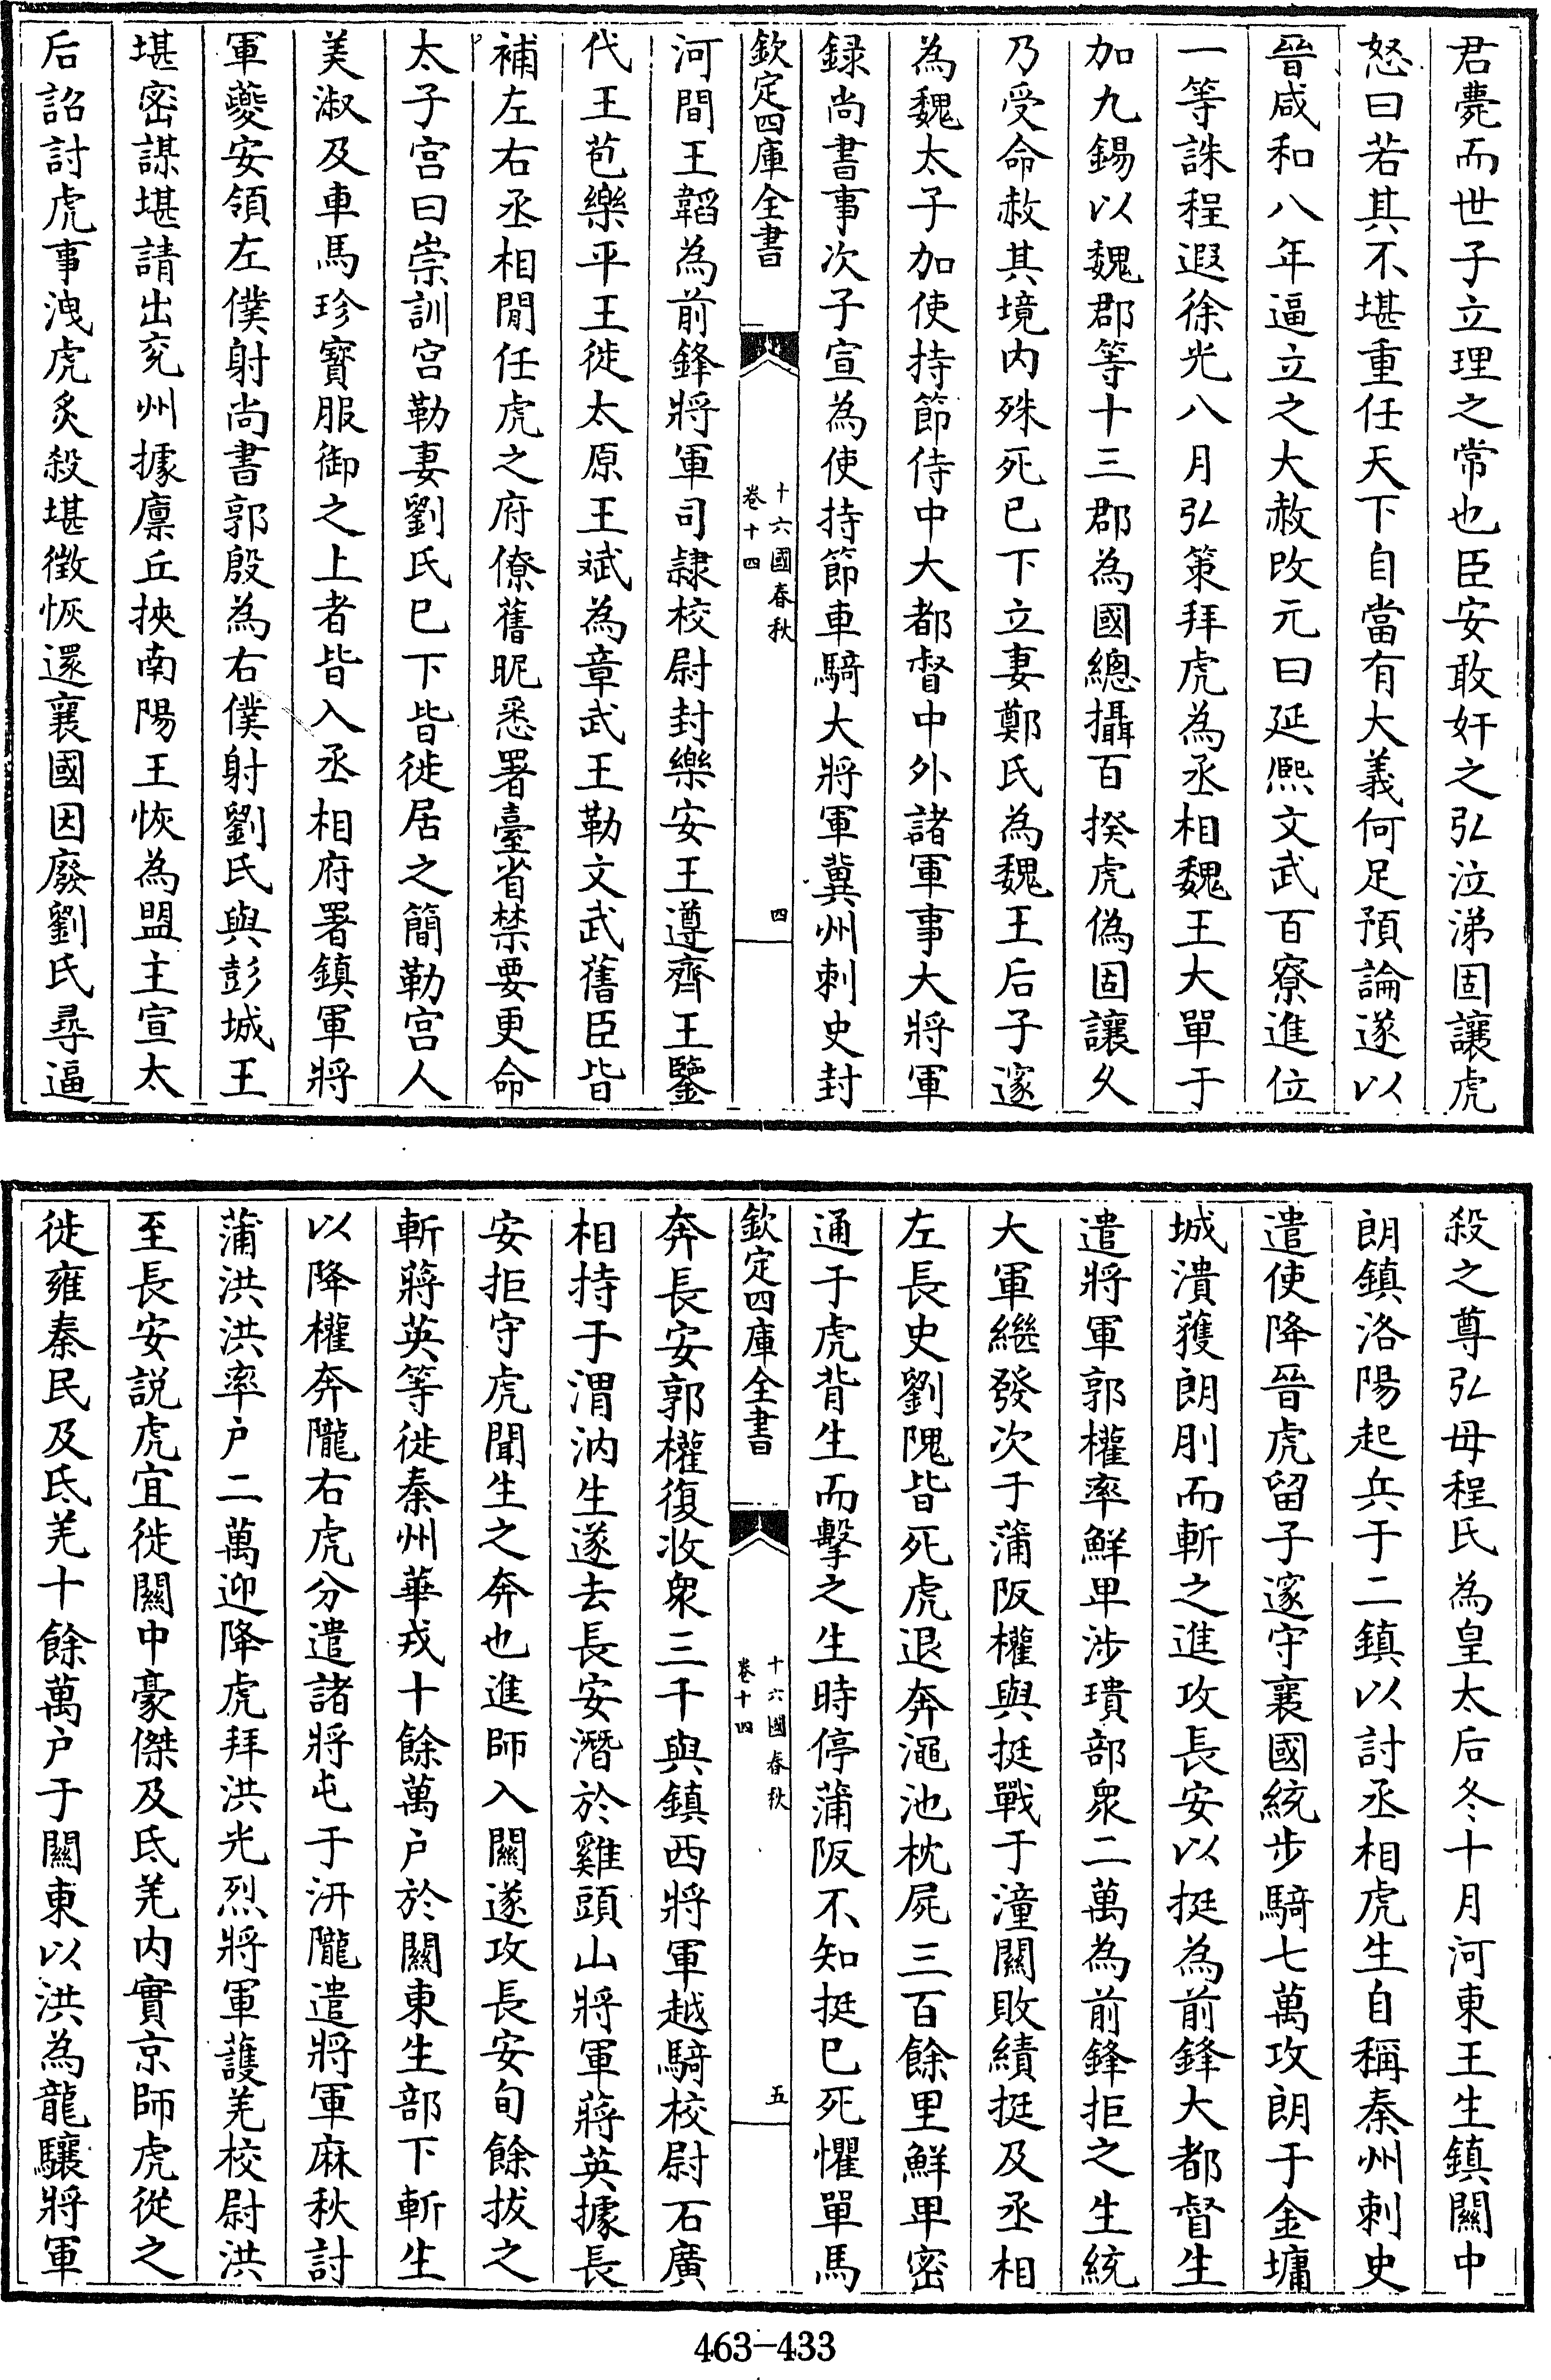 君薨而世子立理之常也臣安敢奸之弘泣涕固讓虎
怒曰若其不堪重任天下自當有大義何足預論遂以
晉咸和八年逼立之大赦改元曰延熙文武百寮進位
一等誅程遐徐光八月弘策拜虎為丞相魏王大單于
加九錫以魏郡等十三郡為國總攝百揆虎偽固讓久
乃受命赦其境内殊死已下立妻鄭氏為魏王后子邃
為魏太子加使持節侍中大都督中外諸軍事大將軍
録尚書事次子宣為使持節車騎大將軍冀州刺史封
欽定四庫全書
十六國春秋
卷十四
四
河間王韜為前鋒將軍司隷校尉封樂安王遵齊王鑒
代王苞樂平王徙太原王斌為章武王勒文武舊臣皆
補左右丞相閒任虎之府僚舊昵悉署臺省禁要更命
太子宫曰崇訓宫勒妻劉氏已下皆徙居之簡勒宫人
美淑及車馬珍寳服御之上者皆入丞相府署鎮軍將
軍夔安領左僕射尚書郭殷為右僕射劉氏與彭城王
堪密謀堪請出兖州據廪丘挾南陽王恢為盟主宣太
后詔討虎事洩虎炙殺堪徵恢還襄國因廢劉氏尋逼
殺之尊弘母程氏為皇太后冬十月河東王生鎮關中
朗鎮洛陽起兵于二鎮以討丞相虎生自稱秦州刺史
遣使降晉虎留子邃守襄國統步騎七萬攻朗于金墉
城潰獲朗刖而斬之進攻長安以挺為前鋒大都督生
遣將軍郭權率鮮卑涉璝部衆二萬為前鋒拒之生統
大軍繼發次于蒲阪權與挺戰于潼關敗績挺及丞相
左長史劉隗皆死虎退奔澠池枕屍三百餘里鮮卑密
通于虎背生而擊之生時停蒲阪不知挺已死懼單馬
欽定四庫全書
十六國春秋
卷十四
五
奔長安郭權復收衆三千與鎮西將軍越騎校尉石廣
相持于渭汭生遂去長安潛於雞頭山將軍蔣英據長
安拒守虎聞生之奔也進師入關遂攻長安旬餘拔之
斬蔣英等徙秦州華戎十餘萬户於關東生部下斬生
以降權奔隴右虎分遣諸將屯于汧隴遣將軍麻秋討
蒲洪洪率户二萬迎降虎拜洪光烈將軍護羌校尉洪
至長安説虎宜徙關中豪傑及氐羌内實京師虎從之
徙雍秦民及氐羌十餘萬户于關東以洪為龍驤將軍
463-433